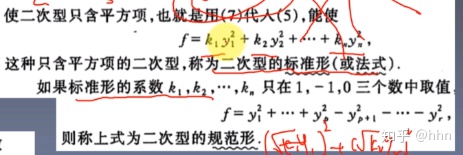 使二次型只含平方项,也就是用(7)代入(5),能使
f=k₁y₁²+k₂y₂²+⋯+kₙyₙ²,
这种只含平方项的二次型,称为二次型的标准形(或法式).
如果标准形的系数 k₁,k₂,⋯,kₙ 只在 1,-1,0 三个数中取值,
f=y₁²+⋯+yₚ²-yₚ₊₁²-⋯-yᵣ²,
则称上式为二次型的规范形.
知乎 @hhn